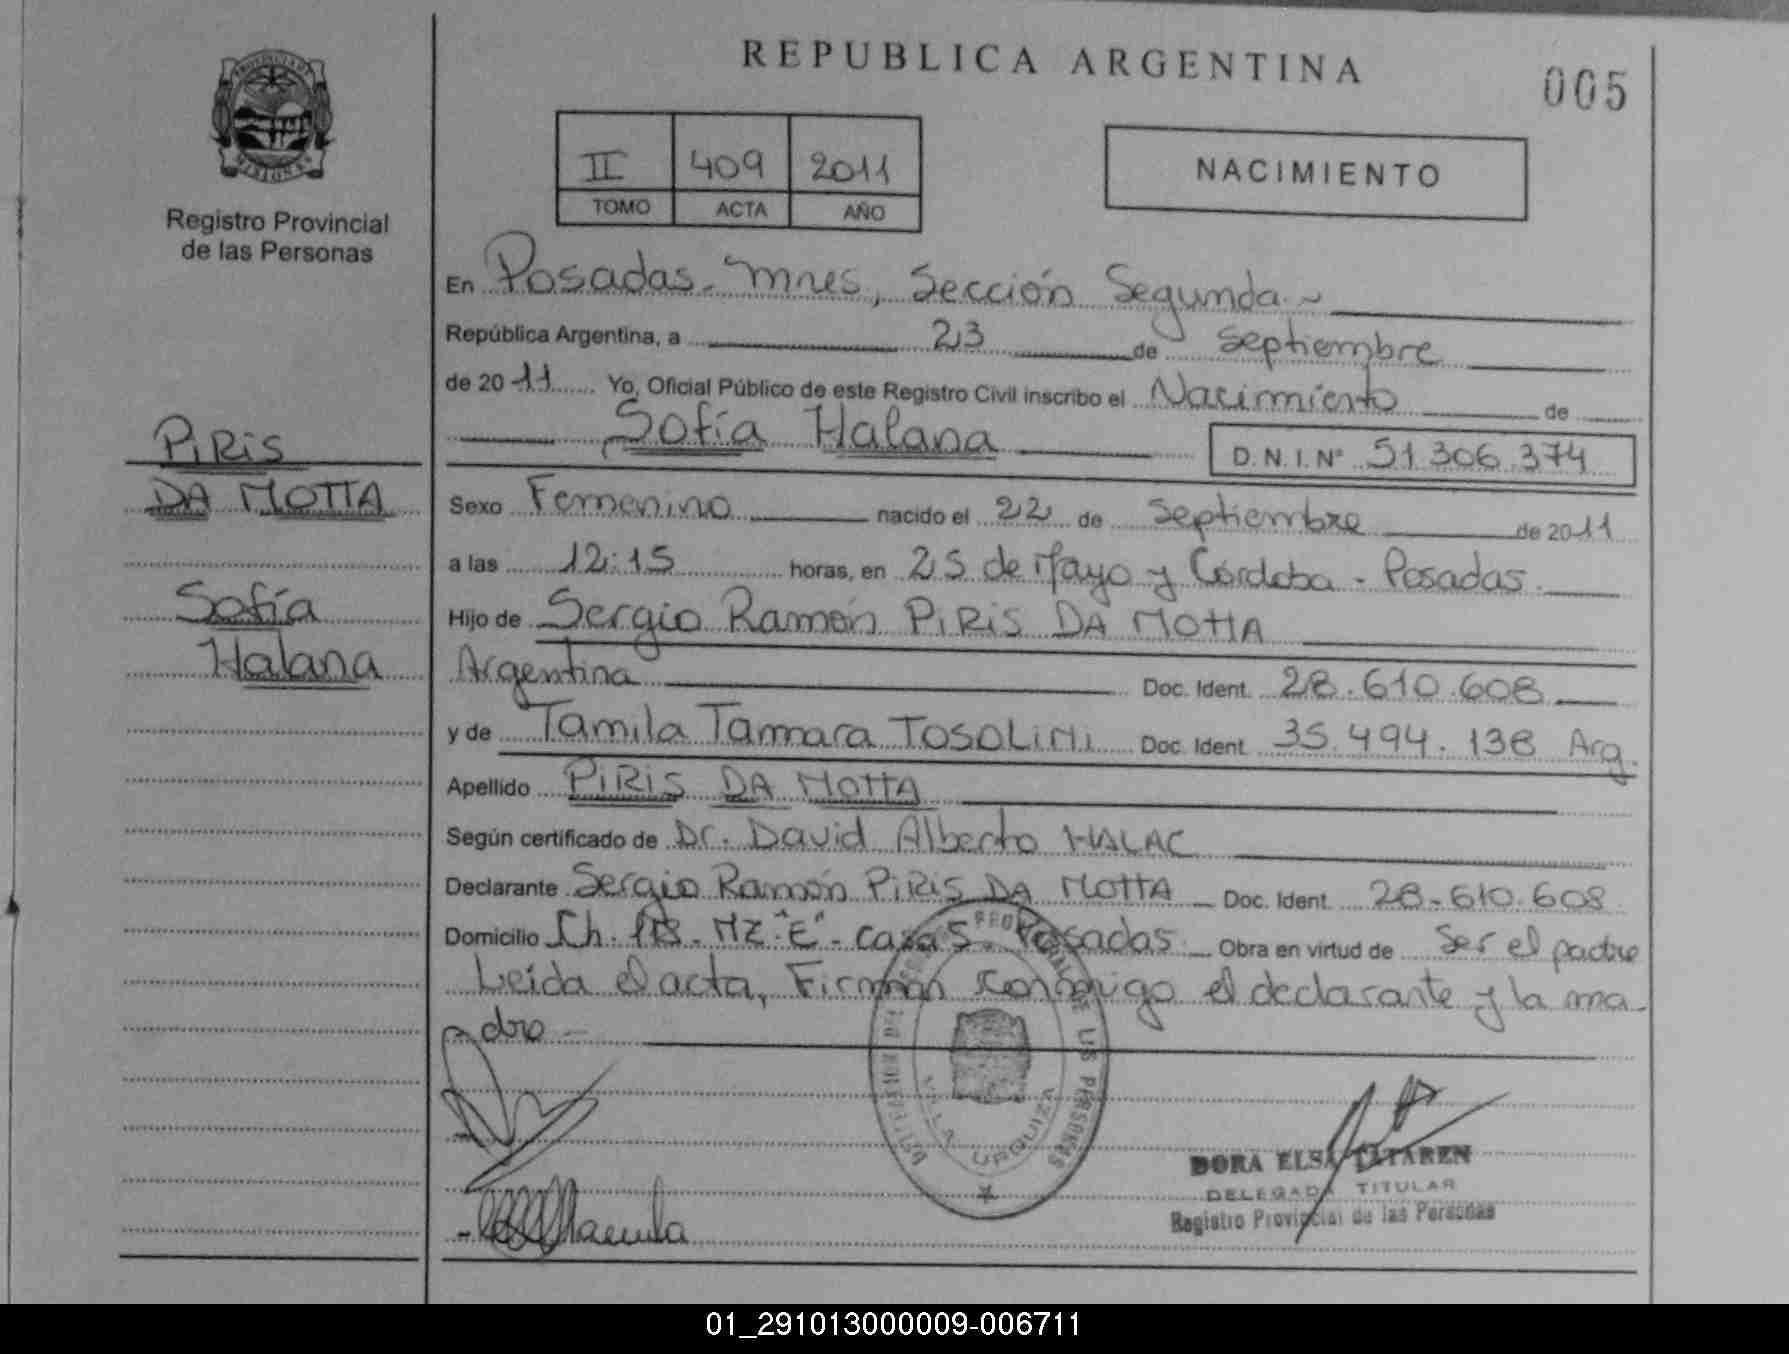 PROVINCIA DE
MISIONES
Registro Provincial
de las Personas
PIRIS
DA MOTTA
Sofía
Halana
REPUBLICA ARGENTINA
005
II 409 2011
TOMO ACTA AÑO
NACIMIENTO
En Posadas - Mnes, Sección Segunda
República Argentina, a 23 de Septiembre
de 2011 Yo, Oficial Público de este Registro Civil inscribo el Nacimiento de
Sofía Halana D.N.I.Nº 51.306.374
Sexo Femenino nacido el 22 de Septiembre de 2011
a las 12:15 horas, en 25 de Mayo y Córdoba - Posadas.
Hijo de Sergio Ramón PIRIS DA MOTTA
Argentina Doc. Ident. 28.610.608
y de Tamila Tamara TOSOLINI Doc. Ident. 35.494.138 Arg.
Apellido PIRIS DA MOTTA
Según certificado de Dr. David Alberto HALAC
Declarante Sergio Ramón PIRIS DA MOTTA Doc. Ident. 28.610.608
Domicilio Ch. MZ "E" - casa 5 - Posadas - Obra en virtud de Ser el padre
Leída el acta, Firman conmigo el declarante y la ma-
dre -
VILLA URQUIZA
DORA ELSA TATAREN
DELEGADA TITULAR
Registro Provincial de las Personas
01_291013000009-006711